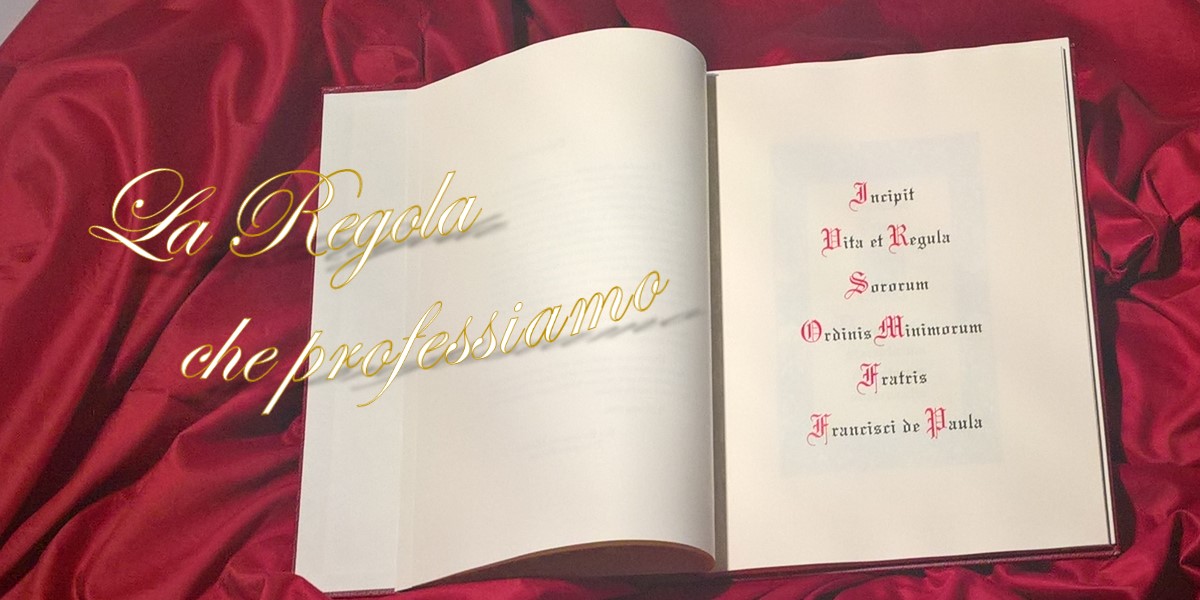 La Regola
che professiamo
Incipit
Vita et Regula
Sororum
Ordinis Minimorum
Fratris
Francisci de Paula